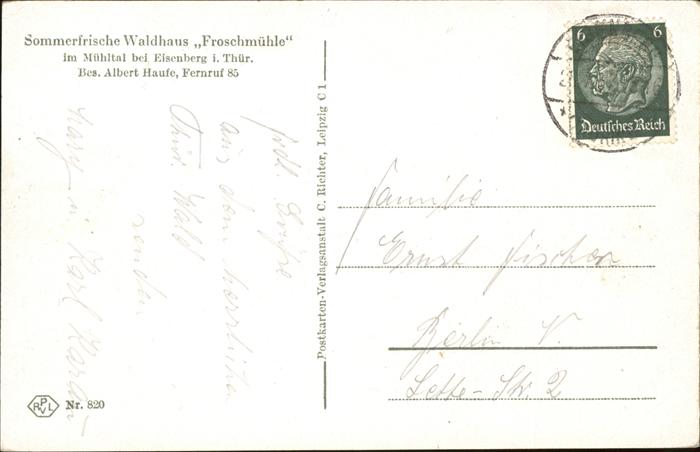 Sommerfrische Waldhaus „Froschmühle“
im Mühltal bei Eisenberg i. Thür.
Bes. Albert Haufe, Fernruf 85
frdl. Grüße
aus dem herrlichen
Thür. Wald
senden
u. Karl
Postkarten-Verlagsanstalt C. Richter, Leipzig C 1
6 6
Deutsches Reich
Familie
Ernst Fischer
Berlin
Lette-Str. 2
R P L V
Nr. 820